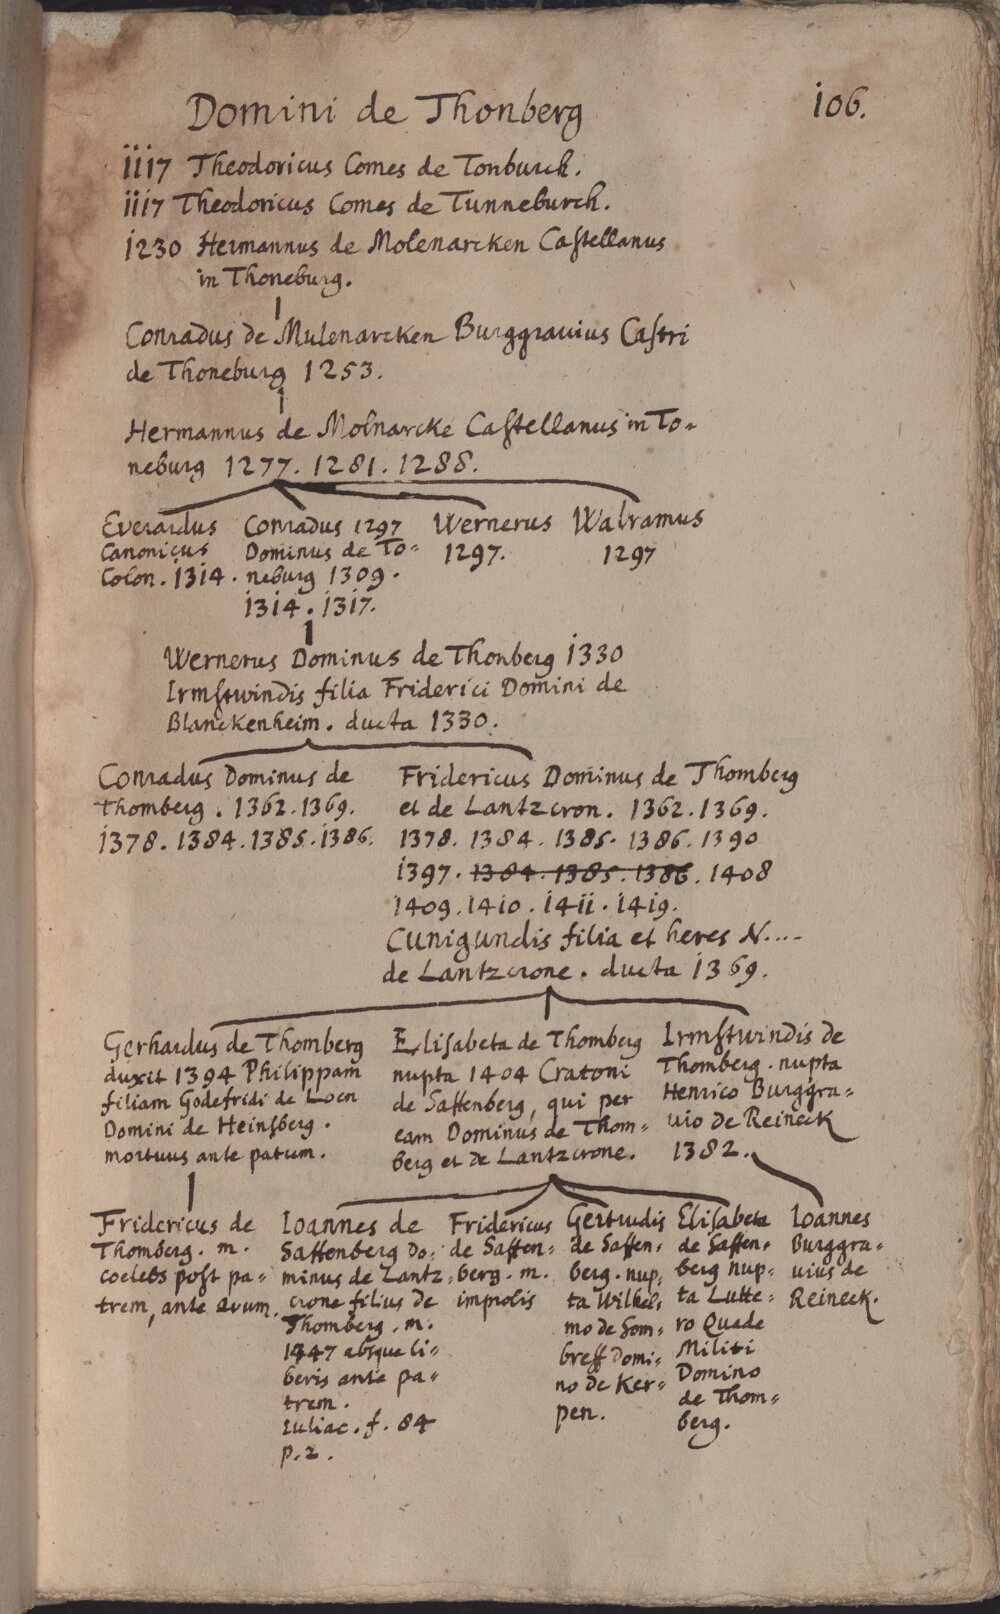 Domini de Thonberg
106.
1117 Theodoricus Comes de Tonburch.
1117 Theodoricus Comes de Tunneburch.
1230 Hermannus de Molenarcken Castellanus
in Thoneburg.
Conradus de Mulenarcken Burggrauius Castri
de Thoneburg 1253.
Hermannus de Molnarcke Castellanus in To=
neburg 1277. 1281. 1288.
Everardus
Canonicus
Colon. 1314.
Conradus 1297
Dominus de To=
neburg 1309.
1314. 1317.
Wernerus
1297.
Walramus
1297
Wernerus Dominus de Thonberg 1330
Irmstwindis filia Friderici Domini de
Blanckenheim. ducta 1330.
Conradus Dominus de
Thomberg. 1362. 1369.
1378. 1384. 1385. 1386.
Fridericus Dominus de Thomberg
et de Lantzcron. 1362. 1369.
1378. 1384. 1385. 1386. 1390
1397. 1384. 1385. 1386. 1408
1409. 1410. 1411. 1419.
Cunigundis filia et heres N....
de Lantzcrone. ducta 1369.
Gerhardus de Thomberg
duxit 1394 Philippam
filiam Godefridi de Loen
Domini de Heinsberg.
mortuus ante patrem.
Elisabeta de Thomberg
nupta 1404 Cratoni
de Saffenberg, qui per
eam Dominus de Thom=
berg et de Lantzcrone.
Irmstwindis de
Thomberg. nupta
Henrico Burggra=
uio de Reineck
1382.
Fridericus de
Thomberg. m.
coelebs post pa=
trem, ante avum.
Ioannes de
Saffenberg Do=
minus de Lantz=
crone filius de
Thomberg. m.
1447 absque li=
beris ante pa=
trem.
Iuliac. f. 84
p. 2.
Fridericus
de Saffen=
berg. m.
improlis
Gertrudis
de Saffen=
berg. nup=
ta Wilhel=
mo de Som=
breff Domi=
no de Ker=
pen.
Elisabeta
de Saffen=
berg nup=
ta Lutte=
ro Quade
Militi
Domino
de Thom=
berg.
Ioannes
Burggra=
uius de
Reineck.